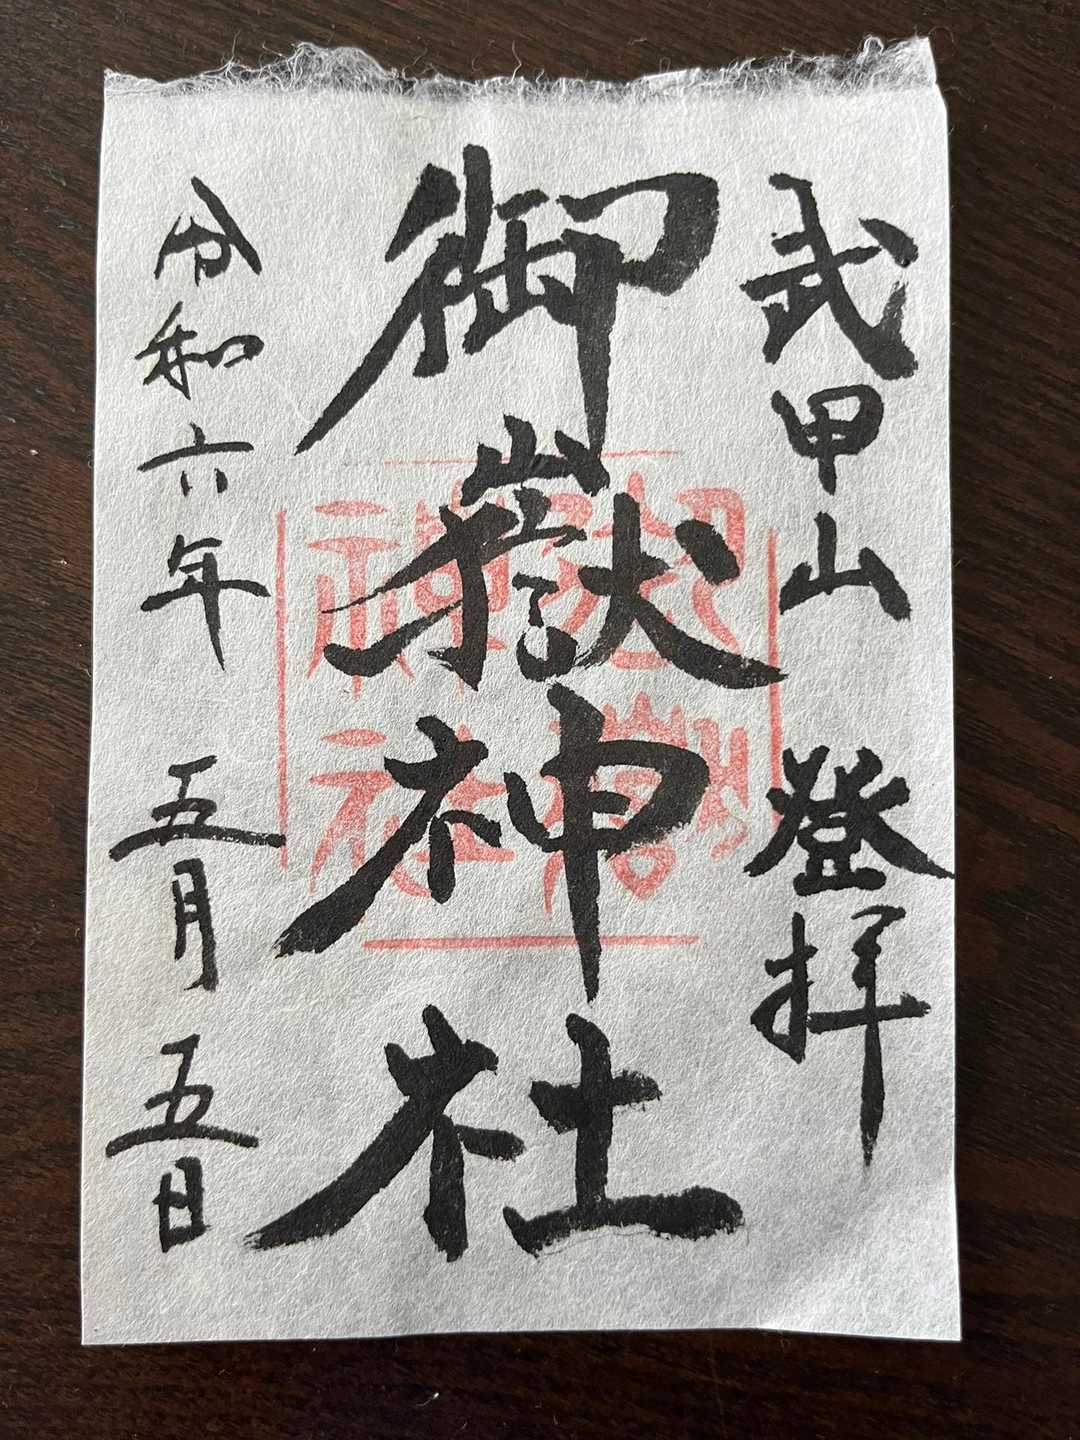 武甲山 登拝
御嶽神社
令和六年 五月 五日